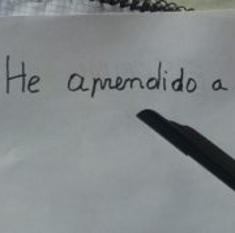 He aprendido a